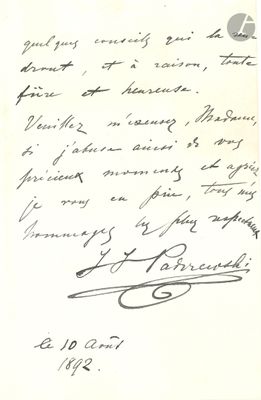 quelques conseils qui la ren-
dront, et à raison, toute
fière et heureuse.
Veuillez m'excuser, Madame,
si j'abuse ainsi de vos
précieux moments et agréez
je vous en prie, tous mes
hommages les plus respectueux
I J Paderewski
le 10 Août
1892.